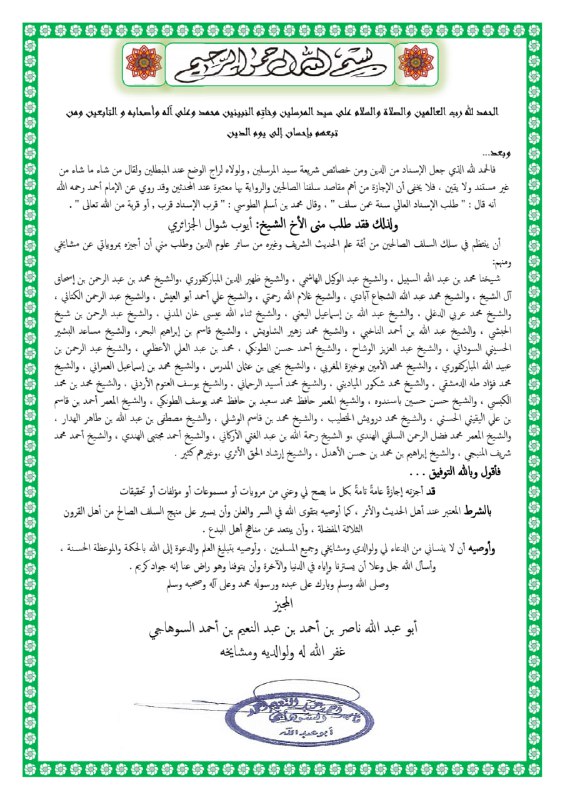 بسم الله الرحمن الرحيم
الحمد لله رب العالمين والصلاة والسلام على سيد المرسلين وخاتم النبيين محمد وعلى آله وأصحابه و التابعين ومن
تبعهم بإحسان إلى يوم الدين
وبعد...
فالحمد لله الذي جعل الإسناد من الدين ومن خصائص شريعة سيد المرسلين , ولولاه لراج الوضع عند المبطلين ولقال من شاء ما شاء من
غير مستند ولا يقين ، فلا يخفى أن الإجازة من أهم مقاصد سلفنا الصالحين والرواية بها معتبرة عند المحدثين وقد روي عن الإمام أحمد رحمه الله
أنه قال : " طلب الإسناد العالي سنة عمن سلف " ، وقال محمد بن أسلم الطوسي : " قرب الإسناد قرب , أو قربة من الله تعالى " .
ولذلك فقد طلب منى الأخ الشيخ: أيوب شوال الجزائري
أن ينتظم في سلك السلف الصالحين من أئمة علم الحديث الشريف وغيره من سائر علوم الدين وطلب مني أن أجيزه بمروياتي عن مشايخي
ومنهم:
شيخنا محمد بن عبد الله السبيل , والشيخ عبد الوكيل الهاشمي , والشيخ ظهير الدين المباركفوري , والشيخ محمد بن عبد الرحمن بن إسحاق
آل الشيخ , والشيخ محمد عبد الله الشجاع آبادي , والشيخ غلام الله رحمتي , والشيخ علي أحمد أبو العيش , والشيخ عبد الرحمن الكتاني ,
والشيخ محمد عربي الدغلي , والشيخ عبد الله بن إسماعيل اليعني , والشيخ ثناء الله عيسى خان المدني , والشيخ عبد الرحمن بن شيخ
الحبشي , والشيخ عبد الله بن أحمد الناخبي , والشيخ محمد زهير الشاويش , والشيخ قاسم بن إبراهيم البحر، والشيخ مساعد البشير
الحسيني السوداني , والشيخ عبد العزيز الوشاح , والشيخ أحمد حسن الطوكي , محمد بن عبد العلي الأعظمي , والشيخ عبد الرحمن بن
عبيد الله المباركفوري , والشيخ محمد الأمين بوخبزة المغربي , والشيخ يحيى بن عثمان المدرس , والشيخ محمد بن إسماعيل العمراني , والشيخ
محمد فؤاد طه الدمشقي , والشيخ محمد شكور المياديني , والشيخ محمد أسيد الرحماني , والشيخ يوسف العتوم الأردني , والشيخ محمد بن محمد
الكبسي , والشيخ حسن حسين باسندوه , والشيخ المعمر حافظ محمد سعيد بن حافظ محمد يوسف الطوكي , والشيخ المعمر أحمد بن قاسم
بن علي اليقيني الحسني , والشيخ محمد درويش الخطيب , والشيخ محمد بن قاسم الوشلي , والشيخ مصطفى بن عبد الله بن طاهر الهدار ,
والشيخ المعمر محمد فضل الرحمن السلفي الهندي ,و الشيخ رحمة الله بن عبد الغني الأركاني , والشيخ أحمد مجتبى الهندي , والشيخ أحمد محمد
شريف المنبجي , والشيخ إبراهيم بن محمد بن حسن الأهدل , والشيخ إرشاد الحق الأثري ,وغيرهم كثير .
فأقول وبالله التوفيق . . .
قد أجزته إجازةً عامةً تامةً بكل ما يصح لي وعني من مرويات أو مسموعات أو مؤلفات أو تحقيقات
بالشرط المعتبر عند أهل الحديث والأثر , كما أوصيه بتقوى الله في السر والعلن وأن يسير على منهج السلف الصالح من أهل القرون
الثلاثة المفضلة , وأن يبتعد عن مناهج أهل البدع .
وأوصيه أن لا ينساني من الدعاء لي ولوالدي ومشايخي وجميع المسلمين . وأوصيه بتبليغ العلم والدعوة إلى الله بالحكمة والموعظة الحسنة .
وأسأل الله جل وعلا أن يسترنا وإياه في الدنيا والآخرة وأن يتوفنا وهو راض عنا إنه جواد كريم .
وصلى الله وسلم وبارك على عبده ورسوله محمد وعلى آله وصحبه وسلم
المجيز
أبو عبد الله ناصر بن أحمد بن عبد النعيم بن أحمد السوهاجي
غفر الله له ولوالديه ومشايخه
ناصر أحمد عبد النعيم أحمد
السوهاجي
أبو عبد الله